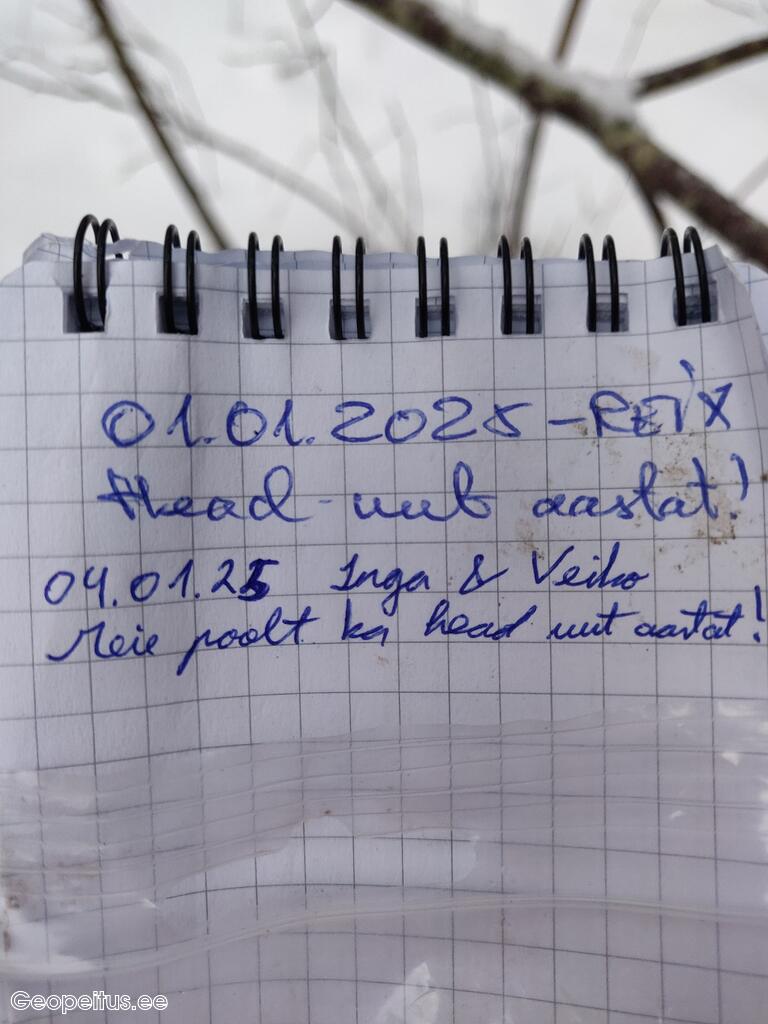 01.01.2025 - REiX
Head uut aastat!
04.01.25 Inga & Veiko
Meie poolt ka head uut aastat!
Geopeitus.ee